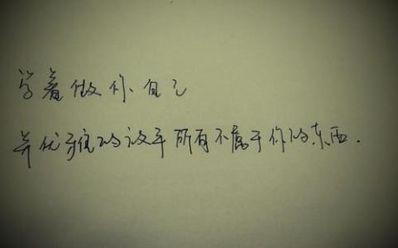 学着做你自己
并优雅的放弃所有不属于你的东西.